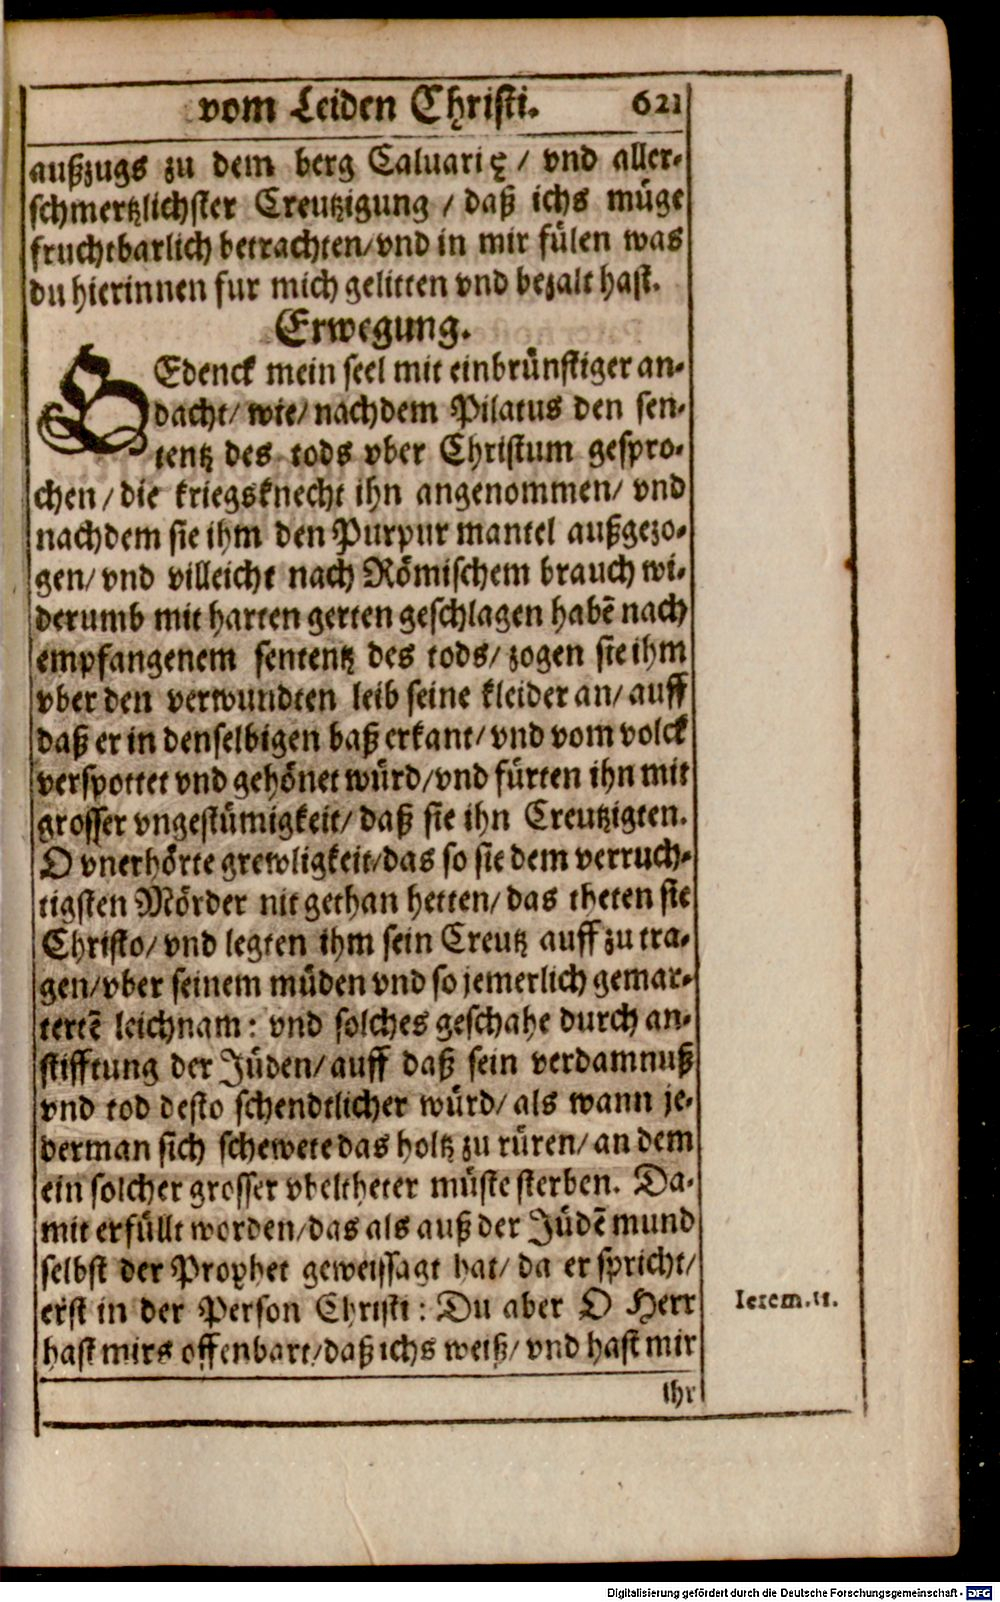 vom Leiden Christi. 621
außzugs zu dem berg Caluarię / vnd aller-
schmertzlichster Creutzigung / daß ichs müge
fruchtbarlich betrachten/vnd in mir fülen was
du hierinnen fur mich gelitten vnd bezalt hast.
Erwegung.
GEdenck mein seel mit einbrünstiger an-
dacht/ wie/ nachdem Pilatus den sen-
tentz des tods vber Christum gespro-
chen / die kriegsknecht ihn angenommen/ vnd
nachdem sie ihm den Purpur mantel außgezo-
gen/ vnd villeicht nach Römischem brauch wi-
derumb mit harten gerten geschlagen habẽ nach
empfangenem sententz des tods/ zogen sie ihm
vber den verwundten leib seine kleider an/ auff
daß er in denselbigen baß erkant/ vnd vom volck
verspottet vnd gehönet würd/vnd fürten ihn mit
grosser vngestümigkeit/ daß sie ihn Creutzigten.
O vnerhörte grewligkeit/das so sie dem verruch-
tigsten Mörder nit gethan hetten/ das theten sie
Christo/ vnd legten ihm sein Creutz auff zu tra-
gen/vber seinem müden vnd so jemerlich gemar-
tertẽ leichnam: vnd solches geschahe durch an-
stifftung der Jüden/ auff daß sein verdamnuß
vnd tod desto schendtlicher würd/ als wann je-
derman sich schewete das holtz zu rüren/ an dem
ein solcher grosser vbeltheter müste sterben. Da-
mit erfüllt worden/das als auß der Jüdẽ mund
selbst der Prophet geweissagt hat/ da er spricht/
erst in der Person Christi: Du aber O Herr
Ierem.11.
hast mirs offenbart/daß ichs weiß/ vnd hast mir
ihr
Digitalisierung gefördert durch die Deutsche Forschungsgemeinschaft - DFG